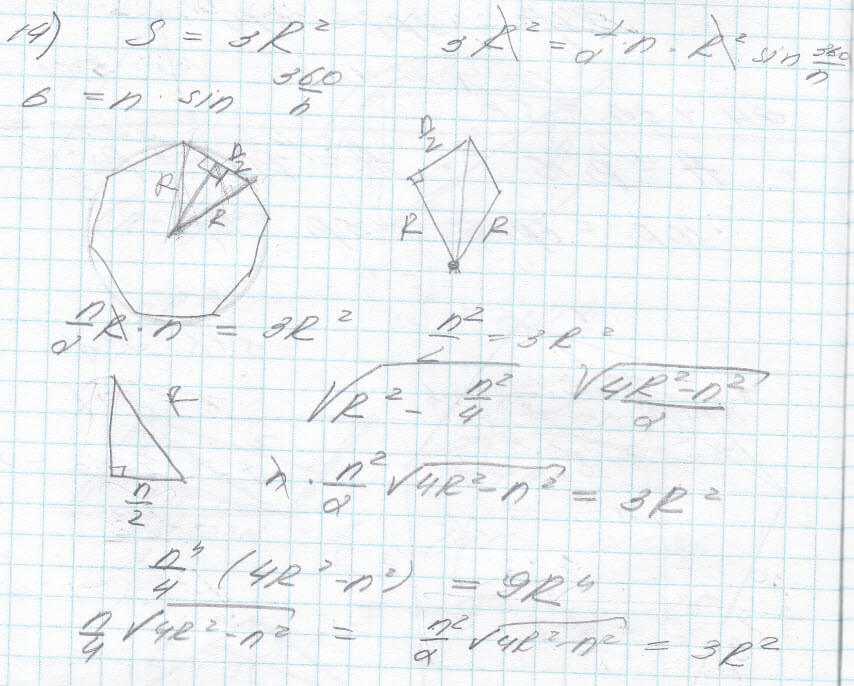 14) S = 3R² 3R² = 1/2 · n · R² sin 360/n
6 = n · sin 360/n
n/2
R
R
n/2
R
R
n/2 R · n = 3R² n²/2 = 3R²
√(R² - n²/4) √(4R² - n²)/2
R
n/2
n · n²/2 √(4R² - n²) = 3R²
n⁴/4 (4R² - n²) = 9R⁴
n/4 √(4R² - n²) = n²/2 √(4R² - n²) = 3R²